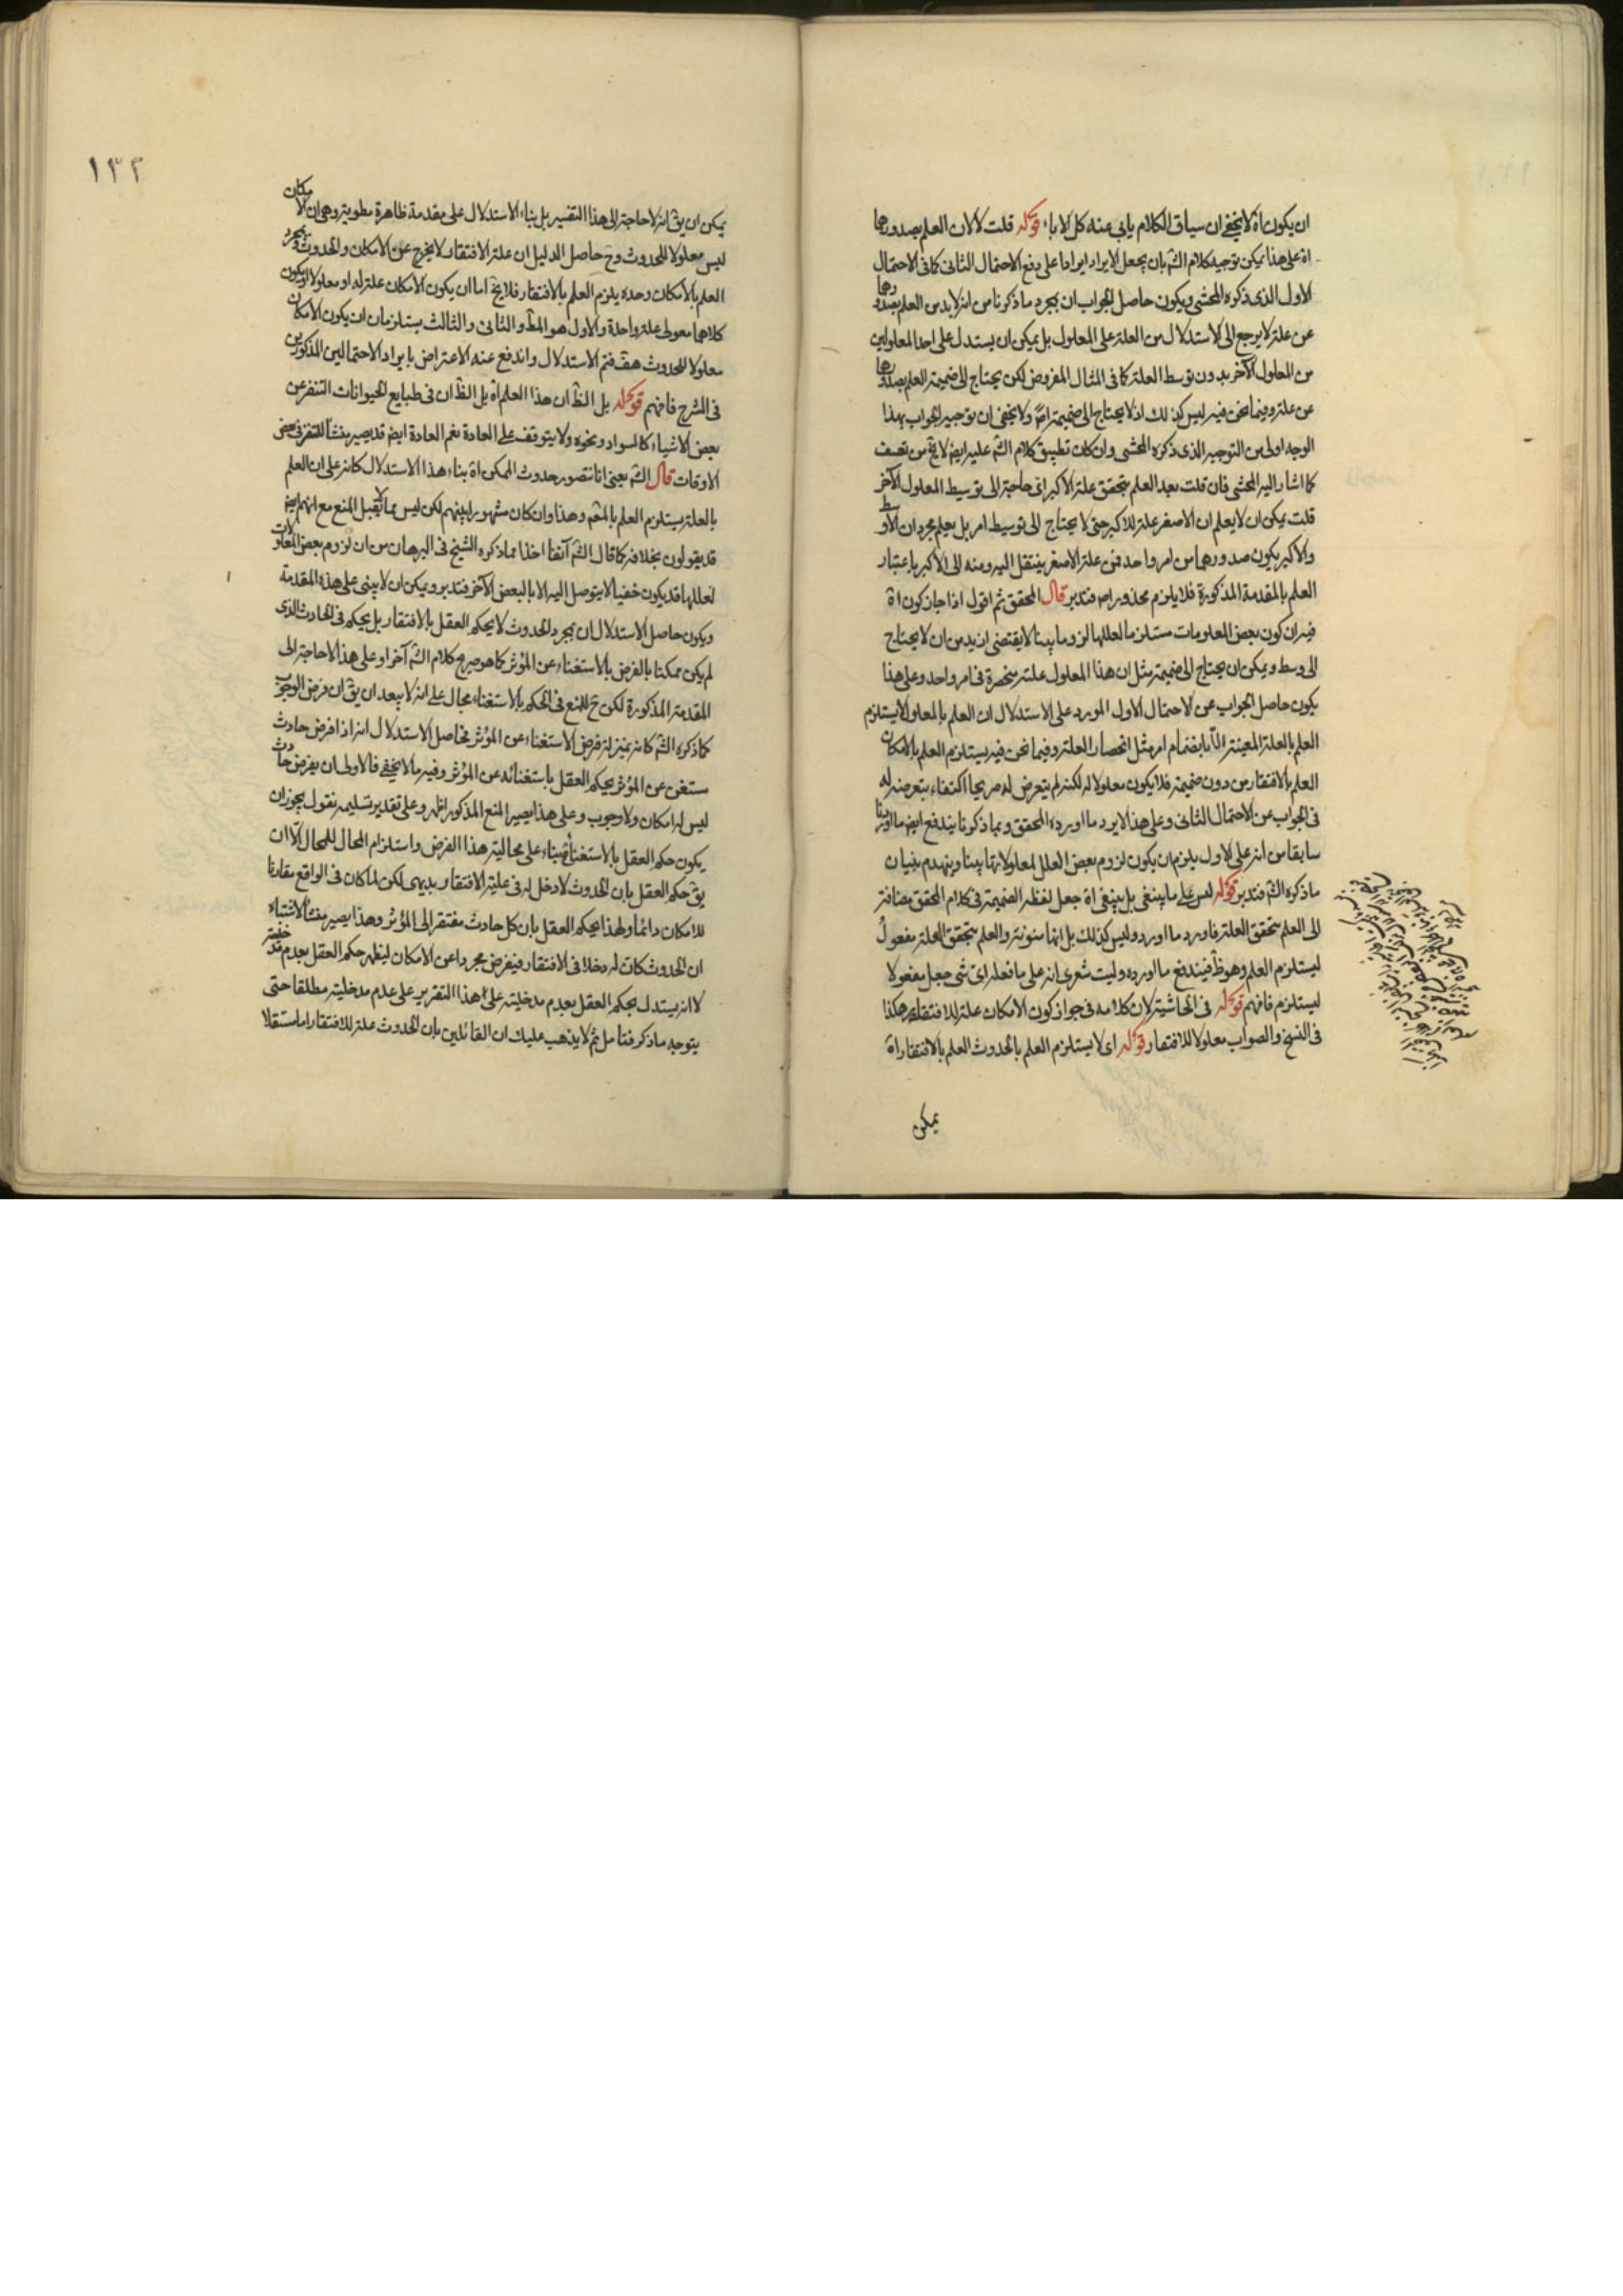 ان يكون اه لا يخفى ان سياق الكلام يابى عنه كل الاباء قوله قلت لا لان العلم بصدورها
اه على هذا يمكن توجيه كلام الشم بان يجعل الايراد ايرادا على دفع الاحتمال الثانى كما فى الاحتمال
الاول الذى ذكره المحشى ويكون حاصل الجواب ان بمجرد ما ذكرنا من انه لا بد من العلم بصدورها
عن علة لا يرجع الى الاستدلال من العلة على المعلول بل يمكن ان يستدل على احد المعلولين
من المعلول الآخر بدون توسط العلة كما فى المثال المفروض لكن يحتاج الى ضميمة العلم بصدورها
عن علة وفيما نحن فيه ليس كذلك اذ لا يحتاج الى ضميمة اصلا ولا يخفى ان توجيه الجواب بهذا
الوجه اولى من التوجيه الذى ذكره المحشى وان كان تطبيق كلام الشم عليه ايضا لا يخ من تعسف
كما اشار اليه المحشى فان قلت بعد العلم بتحقق علة الاكبر اى حاجة الى توسيط المعلول الآخر
قلت يمكن ان لا يعلم ان الاصغر علة للاكبر حتى لا يحتاج الى توسيط امر بل يعلم مجرد ان الاوسط
والاكبر يكون صدورهما من امر واحد فمن علة الاصغر ينتقل اليه ومنه الى الاكبر باعتبار
العلم بالمقدمة المذكورة فلا يلزم محذور اصلا فتدبر قال المحقق ثم اقول اذا جاز كون اه
فيه ان كون بعض المعلومات مستلزما لعللها لزوما بينا لا يقتضى ازيد من ان لا يحتاج
الى وسط ويمكن ان يحتاج الى ضميمة مثل ان هذا المعلول علته منحصرة فى امر واحد وعلى هذا
يكون حاصل الجواب عن الاحتمال الاول المورد على الاستدلال ان العلم بالمعلول لا يستلزم
العلم بالعلة المعينة الا بانضمام امر مثل انحصار العلة وفيما نحن فيه يستلزم العلم بالامكان
العلم بالافتقار من دون ضميمة فلا يكون معلولا له لكنه لم يتعرض له صريحا اكتفاء بتعرضه له
فى الجواب عن الاحتمال الثانى وعلى هذا لا يرد ما اورده المحقق وبما ذكرنا يندفع ايضا ما اوردنا
سابقا من انه على الاول يلزم ان يكون لزوم بعض العلل لمعلولاتها بينا وينهدم بنيان
ما ذكره الشم فتدبر قوله ليس على ما ينبغى بل ينبغى اه جعل لفظ الضميمة فى كلام المحقق مضافة
الى العلم بتحقق العلة فاورد ما اورد وليس كذلك بل انها منونة والعلم بتحقق العلة مفعول
ليستلزم العلم وهو ظ فيندفع ما اورده وليت شعرى انه على ما فعله اى شى جعل مفعولا
ليستلزم فافهم قوله فى الحاشية لان كلامه فى جواز كون الامكان علة للافتقار هكذا
فى النسخ والصواب معلولا للافتقار قوله اى لا يستلزم العلم بالحدوث العلم بالافتقار اه
يمكن
١٣٢
يمكن ان يق انه لا حاجة الى هذا التفسير بل بناء الاستدلال على مقدمة ظاهرة مطوية وهى ان الامكان
ليس معلولا للحدوث وح حاصل الدليل ان علة الافتقار لا يخرج عن الامكان والحدوث وبمجرد
العلم بالامكان وحده يلزم العلم بالافتقار فلا يخ اما ان يكون الامكان علة له او معلولا او يكون
كلاهما معولى علة واحدة والاول هو المط والثانى والثالث يستلزمان ان يكون الامكان
معلولا للحدوث هف فتم الاستدلال واندفع عنه الاعتراض بايراد الاحتمالين المذكورين
فى الشرح فافهم قوله بل الظ ان هذا العلم اه بل الظ ان فى طبايع الحيوانات التنفر عن
بعض الاشياء كالسواد ونحوه ولا يتوقف على العادة نعم العادة ايضا قد يصير منشأ للتنفر فى بعض
الاوقات قال الشم يعنى انا نتصور حدوث الممكن اه بناء هذا الاستدلال كانه على ان العلم
بالعلة يستلزم العلم بالمعلول وهذا وان كان مشهورا بينهم لكن ليس مما لا يقبل المنع مع انهم ايضا
قد يقولون بخلافه كما قال الشم آنفا اخذا مما ذكره الشيخ فى البرهان من ان لزوم بعض المعلولات
لعللها قد يكون خفيا لا يتوصل اليه الا بالبعض الآخر فتدبر ويمكن ان لا يبنى على هذه المقدمة
ويكون حاصل الاستدلال ان بمجرد الحدوث لا يحكم العقل بالافتقار بل يحكم فى الحادث الذى
لم يكن ممكنا بالفرض بالاستغناء عن المؤثر كما هو صريح كلام الشم آخرا وعلى هذا لا حاجة الى
المقدمة المذكورة لكن ح للمنع فى الحكم بالاستغناء مجال على انه لا يبعد ان يق ان فرض الوجوب
كما ذكره الشم كانه بمنزلة فرض الاستغناء عن المؤثر فحاصل الاستدلال انه اذا فرض حادث
مستغن عن المؤثر يحكم العقل باستغنائه عن المؤثر وفيه ما لا يخفى فالاولى ان يفرض حادث
ليس له امكان ولا وجوب وعلى هذا يصير المنع المذكور اظهر وعلى تقدير تسليمه نقول يجوز ان
يكون حكم العقل بالاستغناء بناء على محالية هذا الفرض واستلزام المحال للمحال الا ان
يق حكم العقل بان الحدوث لا دخل له فى علية الافتقار بديهى لكن لما كان فى الواقع مقارنا
للامكان دائما ولهذا يحكم العقل بان كل حادث مفتقر الى المؤثر وهذا يصير منشأ لاشتباه
ان الحدوث كان له دخلا فى الافتقار فيفرض مجردا عن الامكان ليظهر حكم العقل بعدم مدخليته
لا انه يستدل بحكم العقل بعدم مدخليته على هذا التقرير على عدم مدخليته مطلقا حتى
يتوجه ما ذكر فتامل ثم لا يذهب عليك ان القائلين بان الحدوث علة للافتقار اما مستقلا